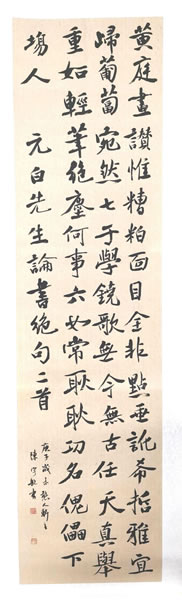 黃庭畫讃惟糟粕面目全非點画訛希哲雅宜
歸葡蔔宛然七子學鐃歌無今無古任天真舉
重如輕筆絕塵何事六如常耿耿功名傀儡下
場人 元白先生論書絕句二首
庚子歲
陳守書